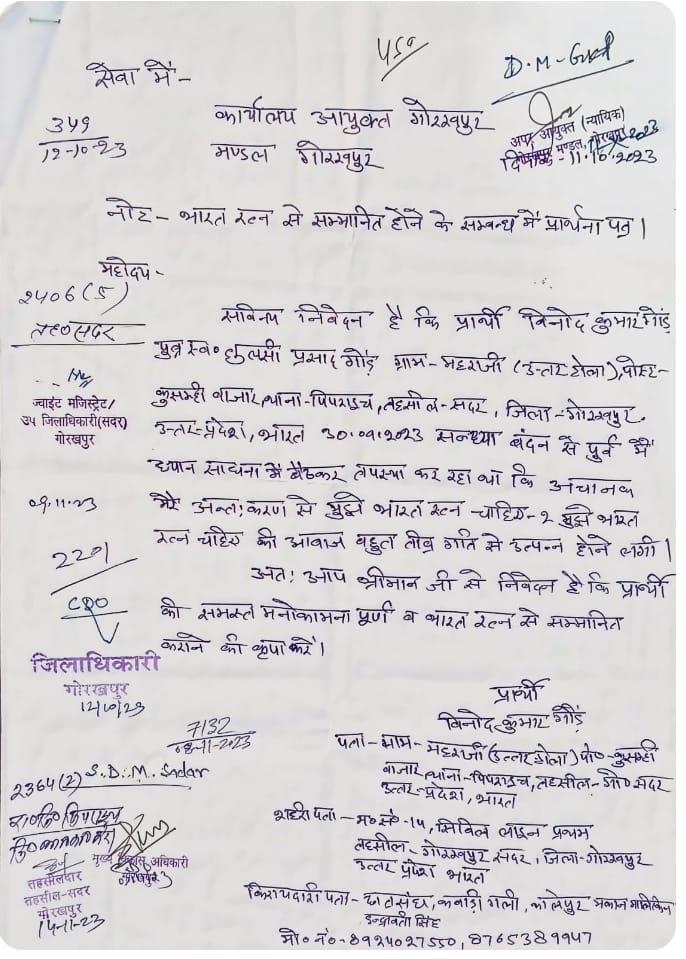 450
D.M-Gkp
सेवा में-
349
12-10-23
कार्यालय आयुक्त गोरखपुर
मण्डल गोरखपुर
अपर आयुक्त (न्यायिक)
गोरखपुर मण्डल, गोरखपुर
दिनांक-11.10.2023
नोट- भारत रत्न से सम्मानित होने के सम्बन्ध में प्रार्थना पत्र।
महोदय-
2406(5)
तह० सदर
सविनय निवेदन है कि प्रार्थी विनोद कुमार गौंड़
पुत्र स्व० तुलसी प्रसाद गौंड़ ग्राम-महराजी (उत्तर टोला), पोस्ट-
कुसम्ही बाजार, थाना-पिपराइच, तहसील-सदर, जिला-गोरखपुर.
उत्तर-प्रदेश, भारत 30.09.2023 सन्ध्या बंदन से पूर्व में
ध्यान साधना में बैठकर तपस्या कर रहा था कि अचानक
मेरे अन्त:करण से मुझे भारत रत्न चाहिए-२ मुझे भारत
रत्न चाहिए की आवाज बहुत तीव्र गति से उत्पन्न होने लगी।
अत: आप श्रीमान जी से निवेदन है कि प्रार्थी
की समस्त मनोकामना पूर्ण व भारत रत्न से सम्मानित
कराने की कृपा करें।
ज्वाइंट मजिस्ट्रेट/
उप जिलाधिकारी(सदर)
गोरखपुर
09.11.23
2201
CDO
जिलाधिकारी
गोरखपुर
12/10/23
प्रार्थी
विनोद कुमार गौंड़
पता-ग्राम-महराजी (उत्तर टोला) पो०-कुसम्ही
बाजार, थाना-पिपराइच, तहसील-गो० सदर
उत्तर-प्रदेश, भारत
शहरी पता- म० सं०-14, सिविल लाइन प्रथम
तहसील-गोरखपुर सदर, जिला-गोरखपुर
उत्तर प्रदेश भारत
किरायदारी पता- छात्रसंघ, कबाड़ी गली, कालेपुर मकान मालकिन
इन्द्रावती सिंह
मो० नं०-8924027550, 8765389947
7132
08-11-2023
2364(2) S.D.M. Sadar
मुख्य विकास अधिकारी
गोरखपुर
तहसीलदार
तहसील-सदर
गोरखपुर
14-11-23